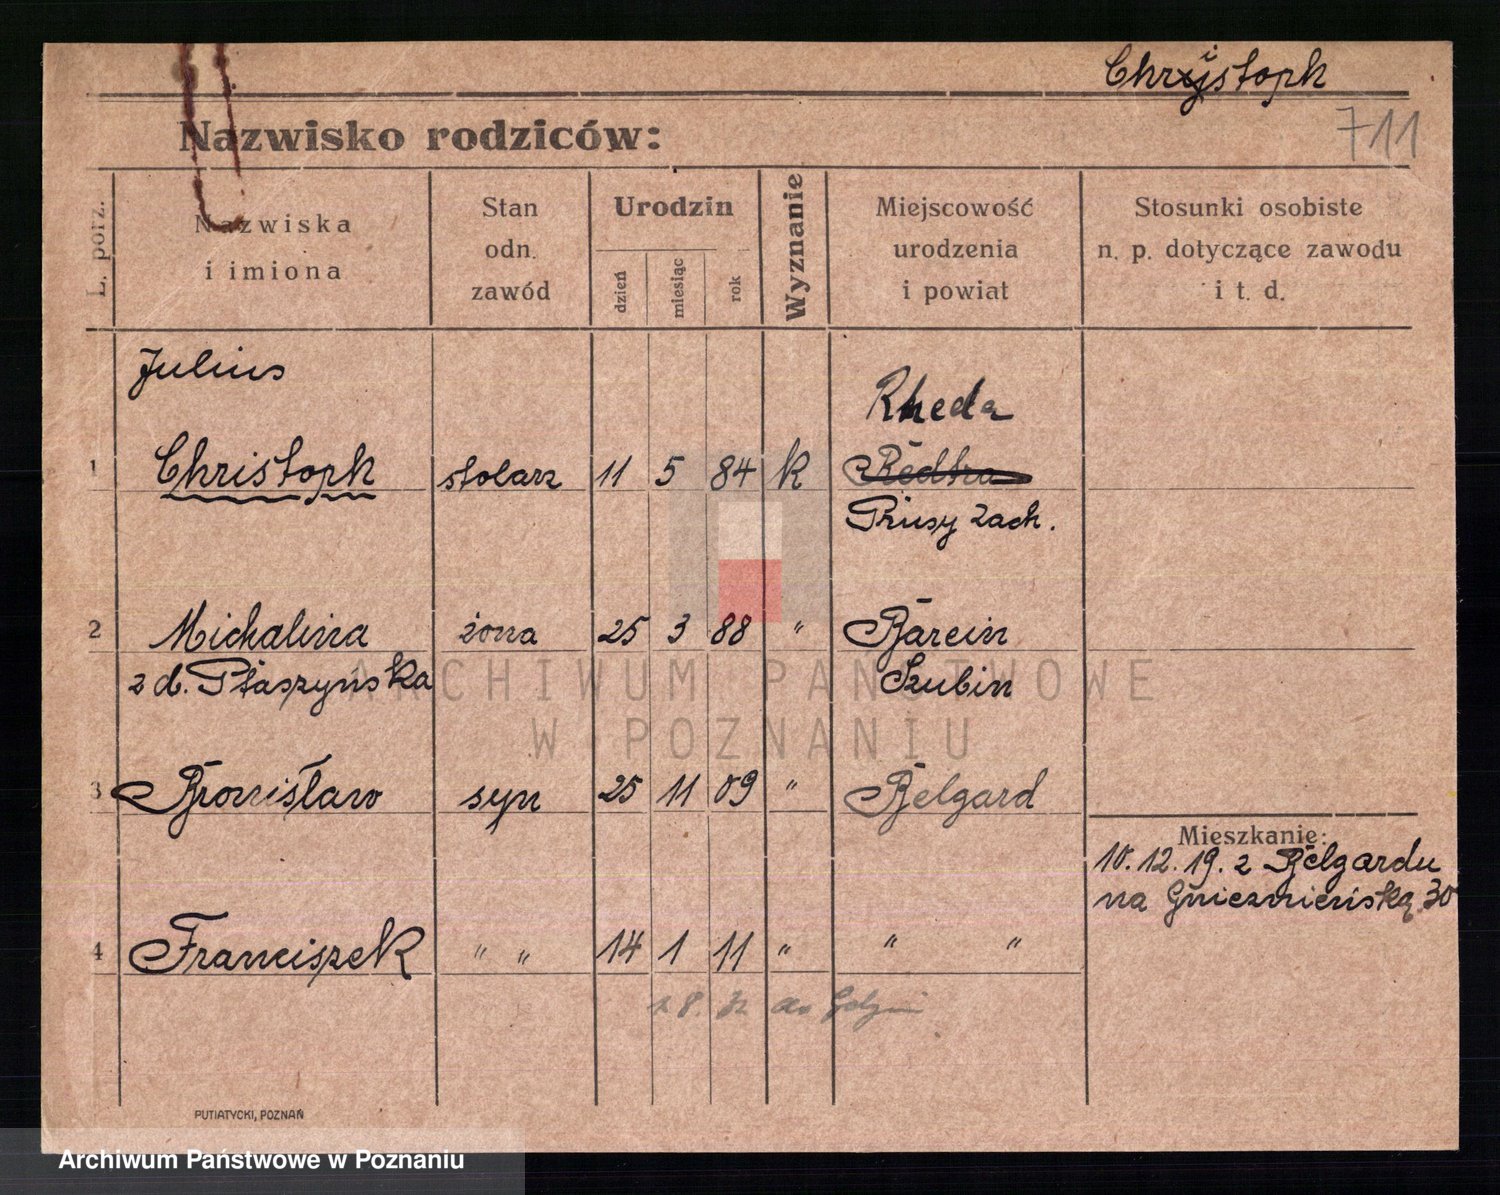 Christoph
711
Nazwisko rodziców:
L. porz.
Nazwiska
i imiona
Stan
odn.
zawód
Urodzin
dzień
miesiąc
rok
Wyznanie
Miejscowość
urodzenia
i powiat
Stosunki osobiste
n. p. dotyczące zawodu
i t. d.
Julius
Rheda
1 Christoph stolarz 11 5 84 k Redtra
Prusy Zach.
2 Michalina żona 25 3 88 " Barcin
z d. Ptaszyńska Szubin
3 Bronisław syn 25 11 09 " Belgard
Mieszkanie:
10.12.19. z Belgardu
na Gnieznieńską 30
4 Franciszek " " 14 1 11 " " "
8. do Gdyni
PUTIATYCKI, POZNAŃ
ARCHIWUM PAŃSTWOWE
W POZNANIU
Archiwum Państwowe w Poznaniu